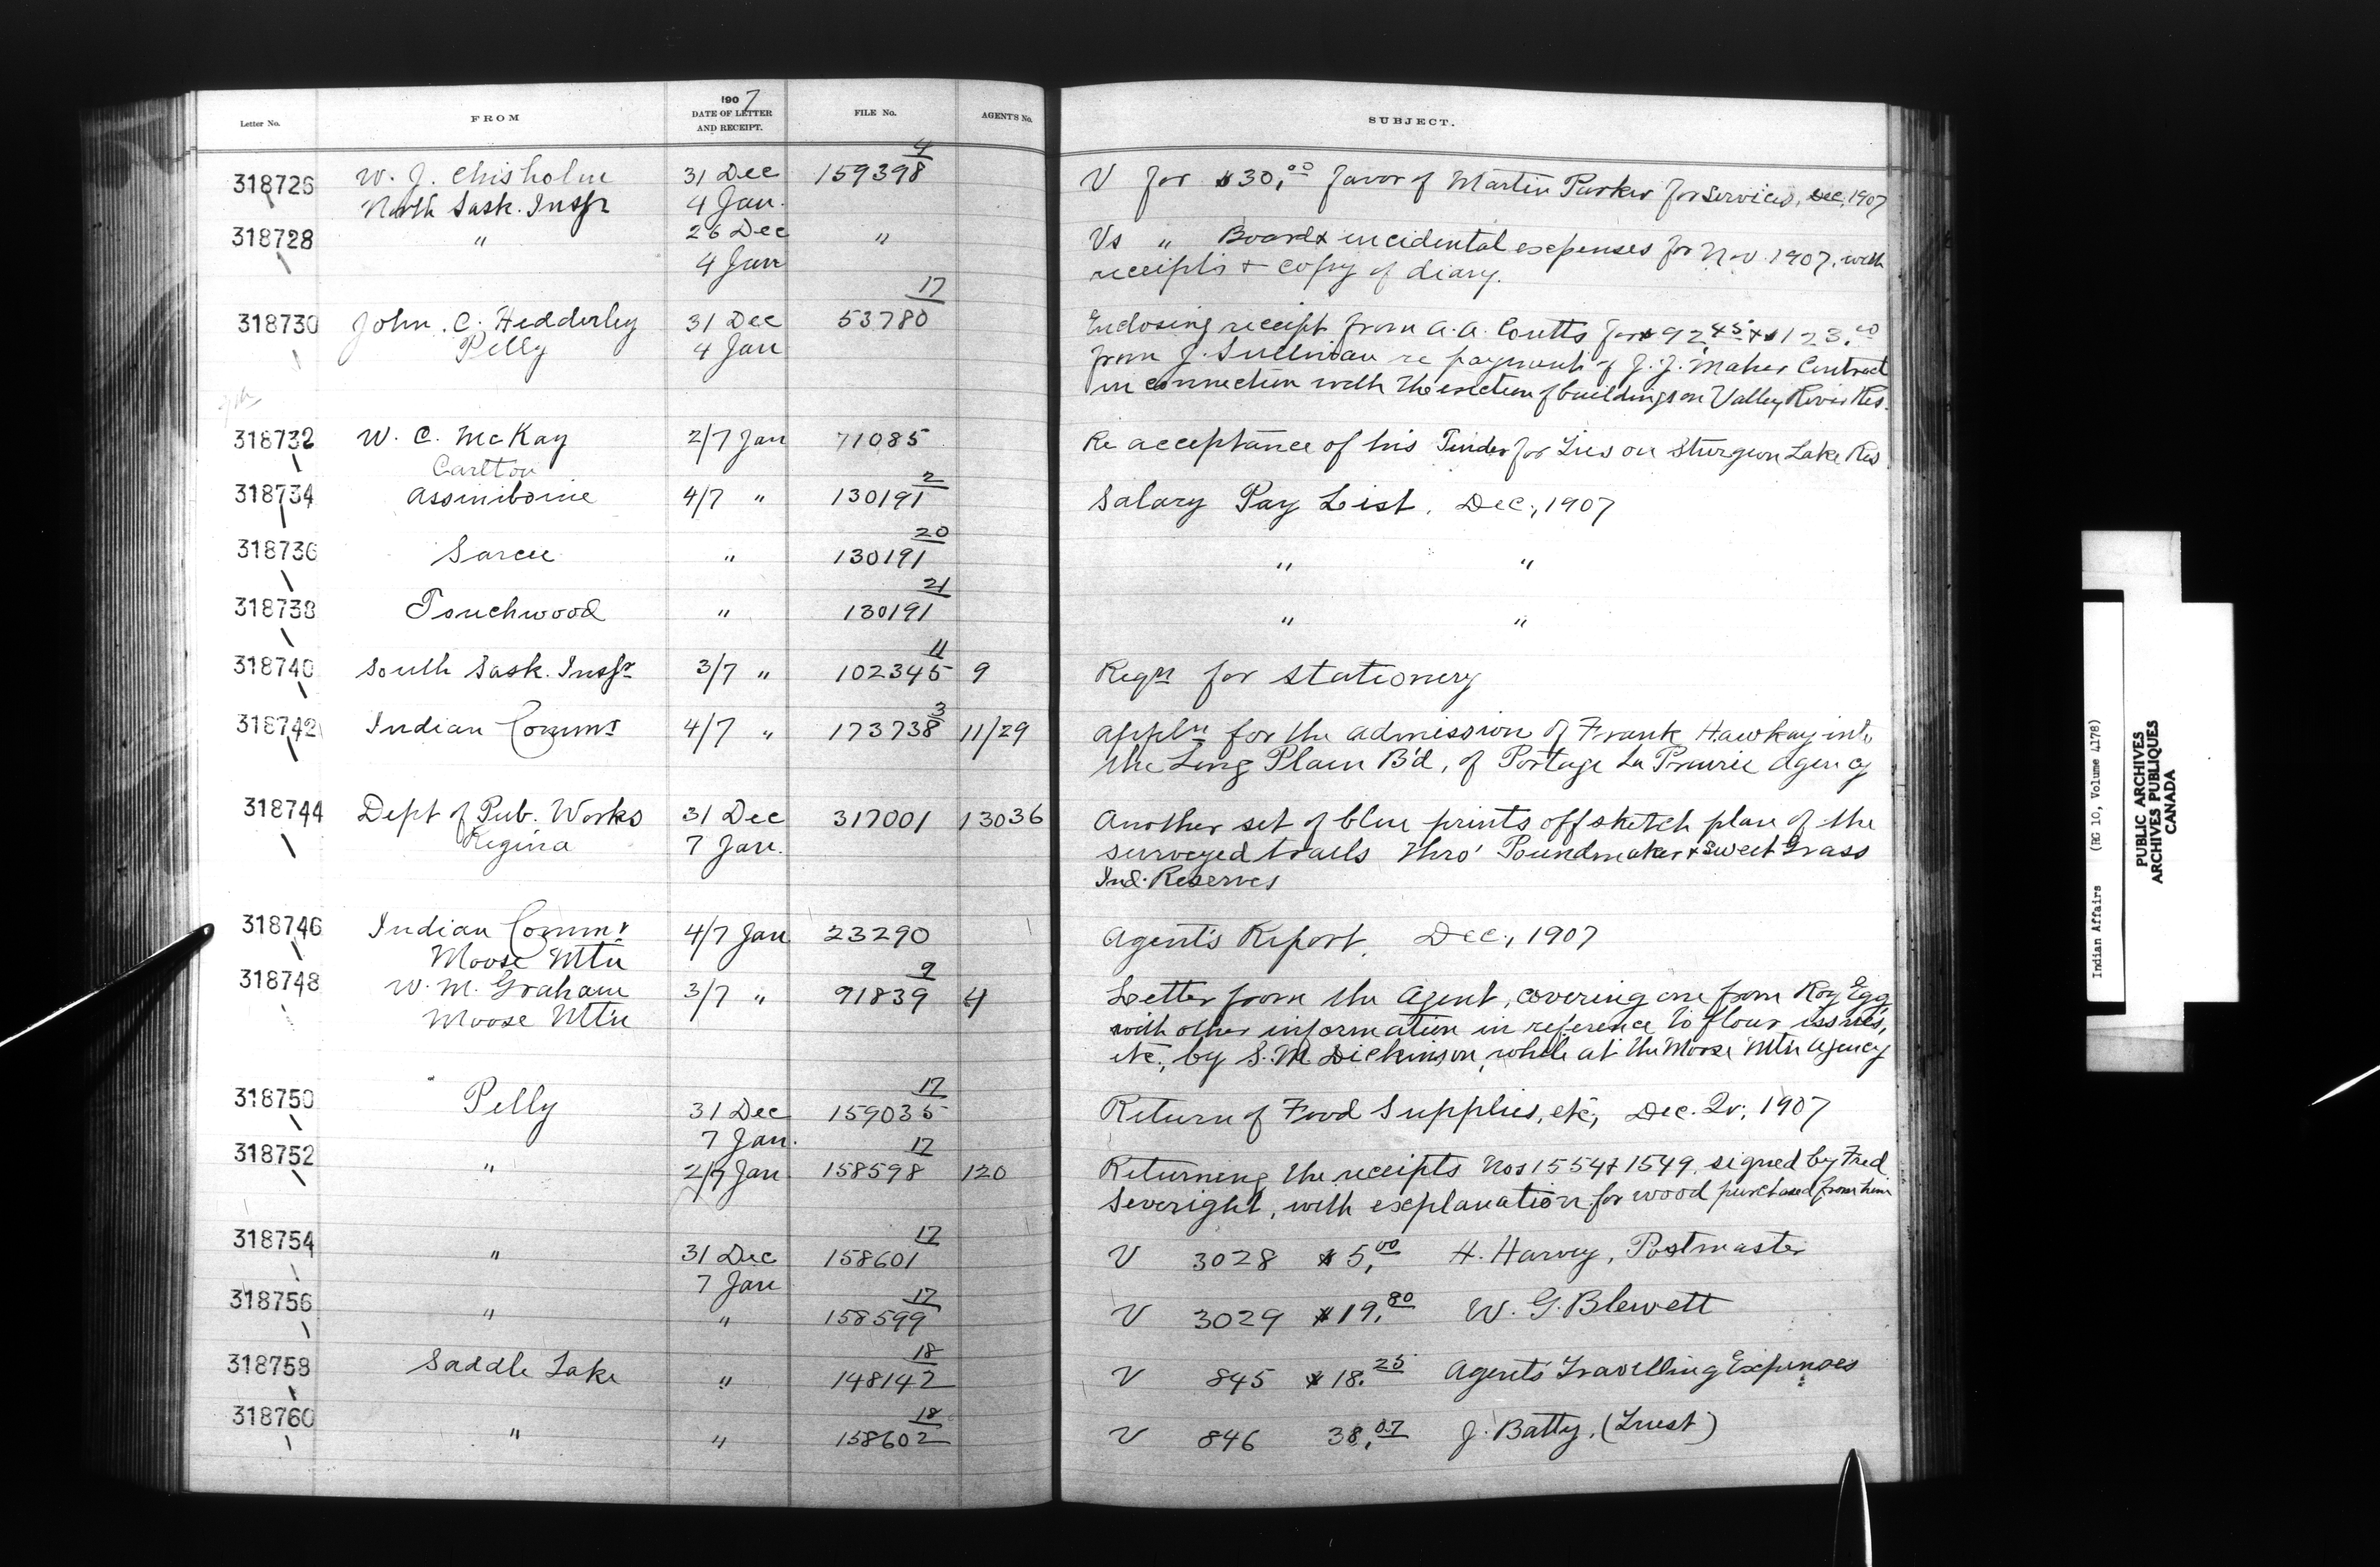 1907
Letter No. FROM DATE OF LETTER AND RECEIPT. FILE No. AGENT'S No. SUBJECT.
318726 W. J. Chisholm 31 Dec 159398/4 V for $30.00 favor of Martin Parker for services, Dec, 1907
North Sask. Inspr 4 Jan.
318728 " 26 Dec " Vs " Board & incidental expenses for Nov. 1907, with
4 Jan receipts & copy of diary.
318730 John. C. Hedderley 31 Dec 53780/17 Enclosing receipt from A. A. Coutts for $92.45 & $123.00
Pelly 4 Jan from J. Sullivan re payment of J. J. Maher Contract
in connection with the erection of buildings on Valley River Res.
318732 W. C. McKay 2/7 Jan 71085 Re acceptance of his Tender for Lies on Sturgeon Lake Res
Carlton
318734 Assiniboine 4/7 " 130191/2 Salary Pay List. Dec., 1907
318736 Sarcee " 130191/20 " "
318738 Touchwood " 130191/21 " "
318740 South Sask. Inspr 3/7 " 102345/11 9 Reqn for stationery
318742 Indian Commr 4/7 " 173738/3 11/29 Appln for the admission of Frank Hawkay into
the Long Plain B'd, of Portage La Prairie Agency
318744 Dept of Pub. Works 31 Dec 317001 13036 Another set of blue prints off sketch plan of the
Regina 7 Jan. surveyed trails thro' Poundmaker & Sweet Grass
Ind. Reserves
318746 Indian Commr 4/7 Jan 23290 Agent's Report. Dec., 1907
Moose Mtn
318748 W. M. Graham 3/7 " 91839/9 4 Letter from the Agent, covering one from Roy Egg
Moose Mtn with other information in reference to flour issues,
etc., by S. M. Dickinson, while at the Moose Mtn Agency
318750 Pelly 31 Dec 159035/17 Return of Food Supplies, etc, Dec. Qr., 1907
7 Jan.
318752 " 2/7 Jan 158598/17 120 Returning the receipts Nos 1554 & 1549. signed by Fred
Severight, with explanation for wood purchased from him
318754 " 31 Dec 158601/17 V 3028 $5.00 H. Harvey, Postmaster
7 Jan
318756 " " 158599/17 V 3029 $19.80 W. G. Blewett
318758 Saddle Lake " 148142/18 V 845 $18.25 Agent's Travelling Expenses
318760 " " 158602/18 V 846 38.07 J. Batty. (Trust)
Indian Affairs (RG 10, Volume 4178)
PUBLIC ARCHIVES
ARCHIVES PUBLIQUES
CANADA